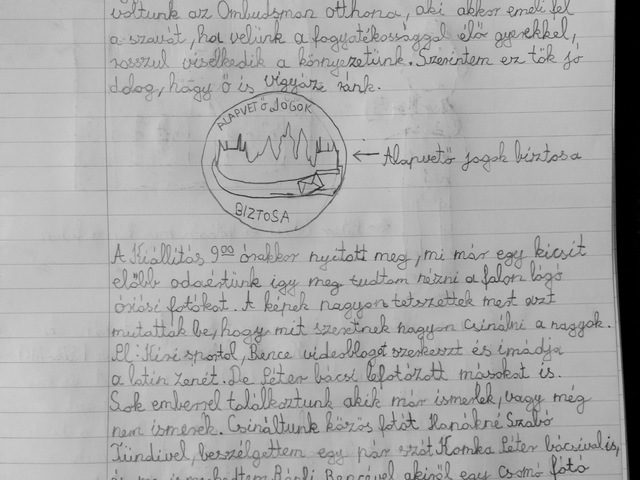 voltunk az Ombudsman otthona, aki akkor emeli fel
a szavát, ha velünk a fogyatékossággal élő gyerekkel,
rosszul viselkedik a környezetünk. Szerintem ez tök jó
dolog, hogy ő is vigyáz ránk.
ALAPVETŐ JOGOK
← Alapvető jogok biztosa
BIZTOSA
A Kiállítás 9⁰⁰ órakkor nyitott meg, mi már egy kicsit
előbb odaértünk igy meg tudtam nézni a falon lógó
óriási fotókat. A képek nagyon tetszettek mert azt
mutatták be, hogy mit szeretnek nagyon csinálni a nagyok.
Pl: Kini sportol, Bence videoblogot szerkeszt és imádja
a latin zenét. De Péter bácsi lefotózott másokat is.
Sok emberrel találkoztunk akik már ismerek, vagy még
nem ismerek. Csináltunk közös fotót Hanákné Szabó
Tündivel, beszélgettem egy pár szót Komka Péter bácsival is,
Bencével akiről egy csomó fotó